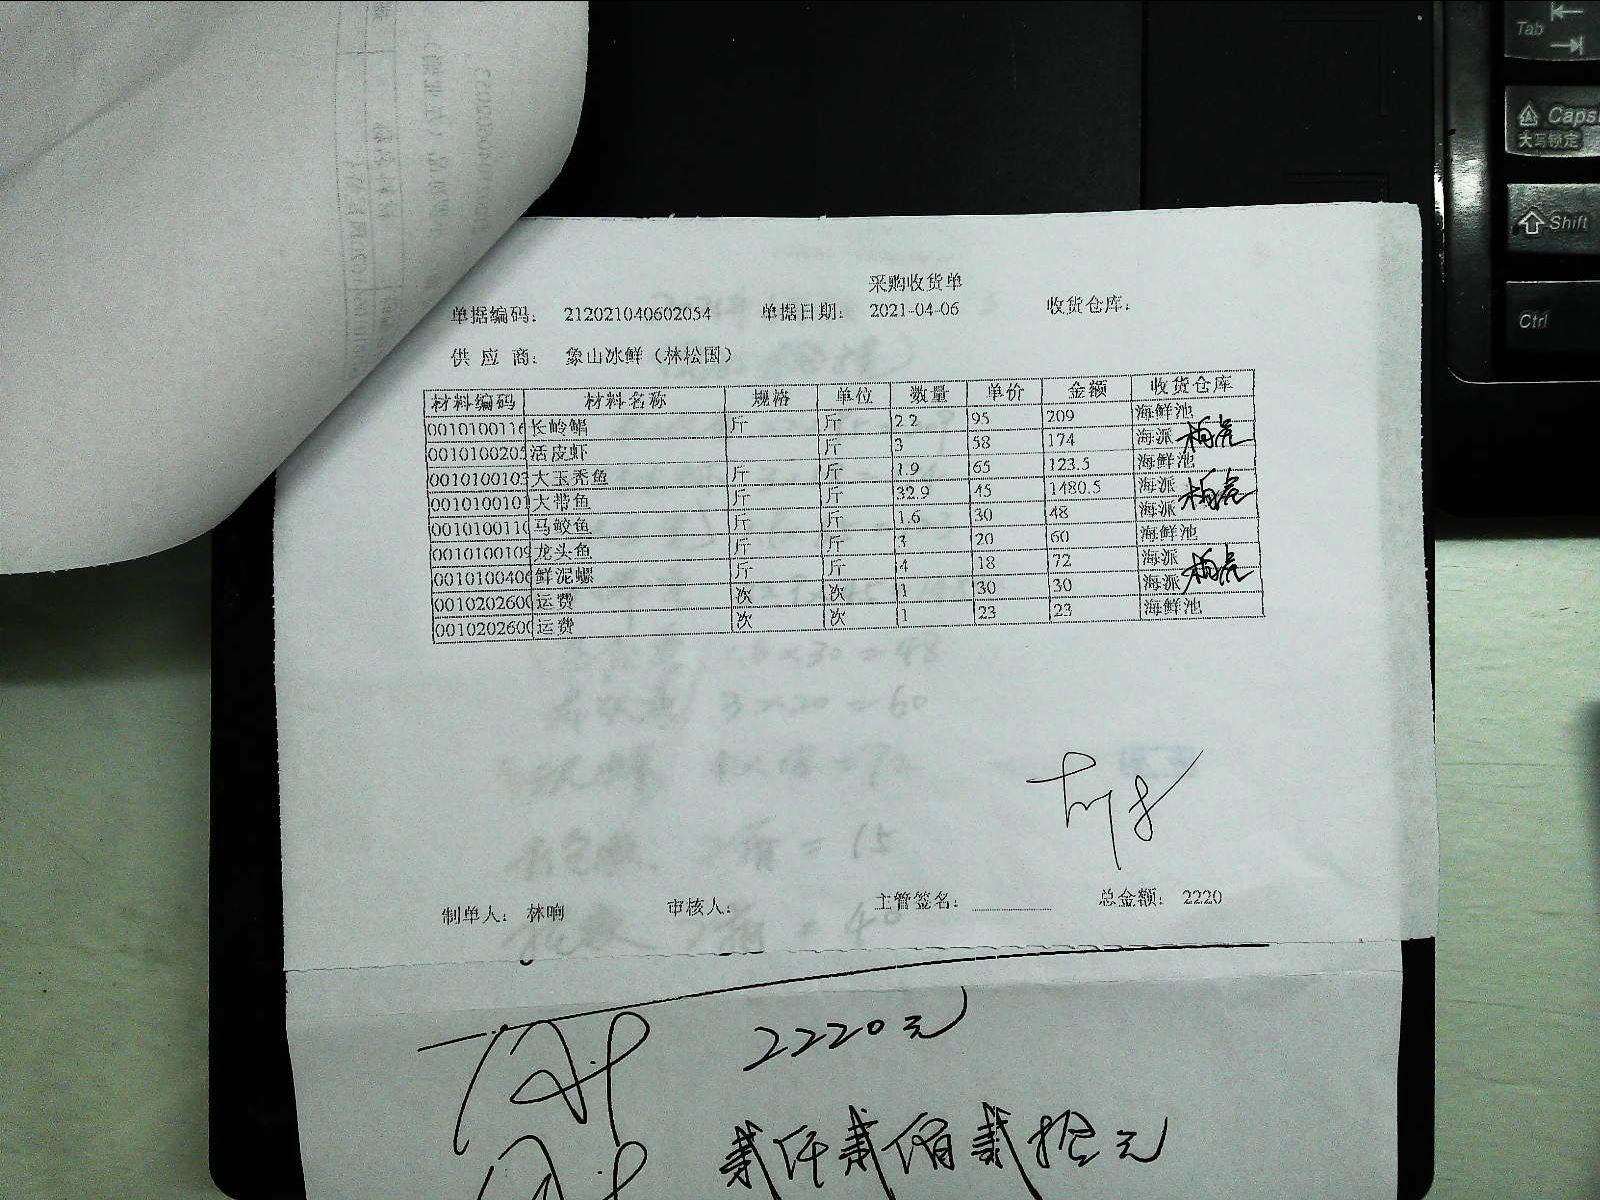 采购收货单
单据编码： 212021040602054 单据日期： 2021-04-06 收货仓库：
供 应 商： 象山冰鲜（林松国）
材料编码 材料名称 规格 单位 数量 单价 金额 收货仓库
0010100116 长岭鲳 斤 斤 2.2 95 209 海鲜池
0010100205 活皮虾 斤 3 58 174 海派
0010100103 大玉秃鱼 斤 斤 1.9 65 123.5 海鲜池
0010100101 大带鱼 斤 斤 32.9 45 1480.5 海派
0010100110 马鲛鱼 斤 斤 1.6 30 48 海派
0010100109 龙头鱼 斤 斤 3 20 60 海鲜池
0010100406 鲜泥螺 斤 斤 4 18 72 海派
0010202600 运费 次 次 1 30 30 海派
0010202600 运费 次 次 1 23 23 海鲜池
制单人： 林响 审核人： 主管签名： 总金额： 2220
2220元
贰仟贰佰贰拾元
Tab
Caps
大写锁定
Shift
Ctrl